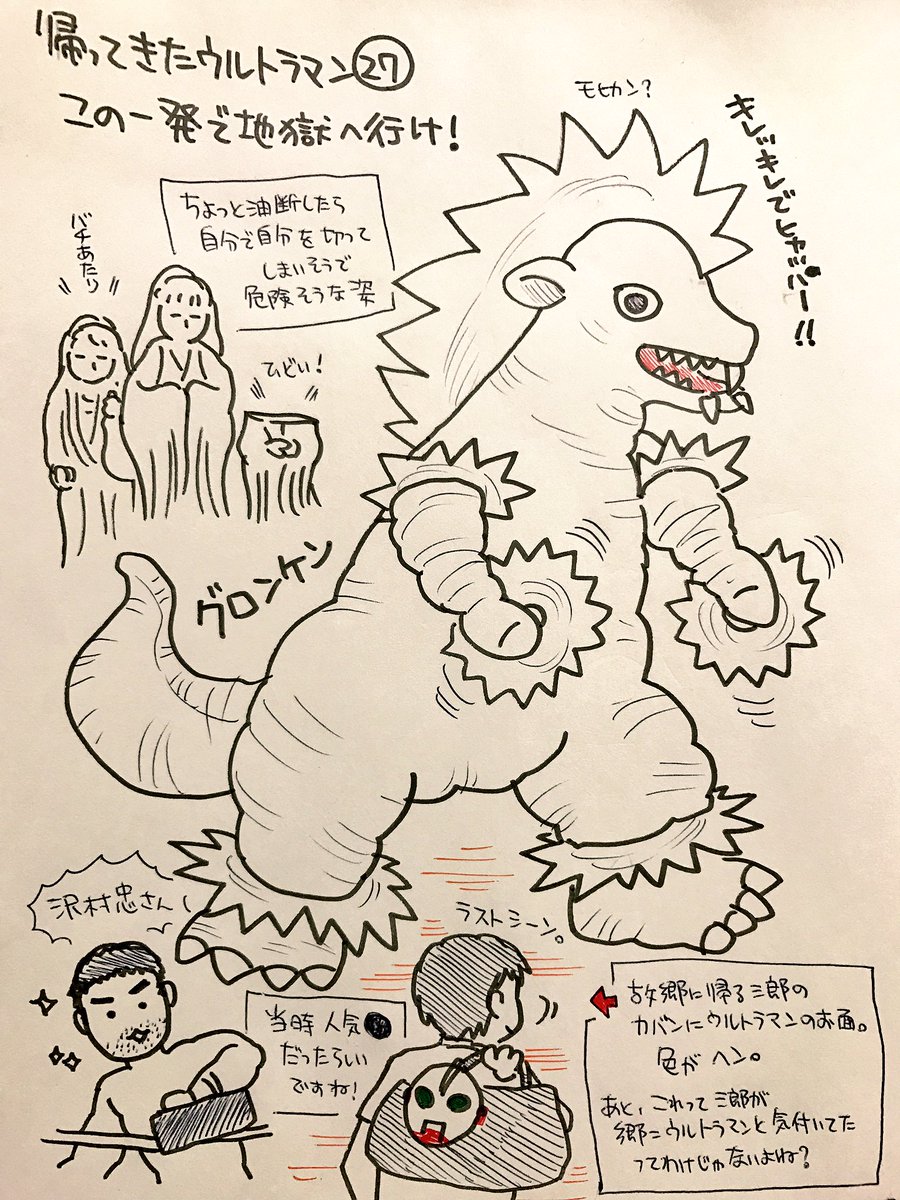 帰ってきたウルトラマン㉗
この一発で地獄へ行け!
モヒカン?
キレッキレでヒャッハー!!
ちょっと油断したら
自分で自分を切って
しまいそうで
危険そうな姿
バチあたり
ひどい!
グロンケン
沢村忠さん
当時人気
だったらしい
ですね!
ラストシーン。
故郷に帰る三郎の
カバンにウルトラマンのお面。
色がヘン。
あと、これって三郎が
郷=ウルトラマンと気付いてた
ってわけじゃないよね?